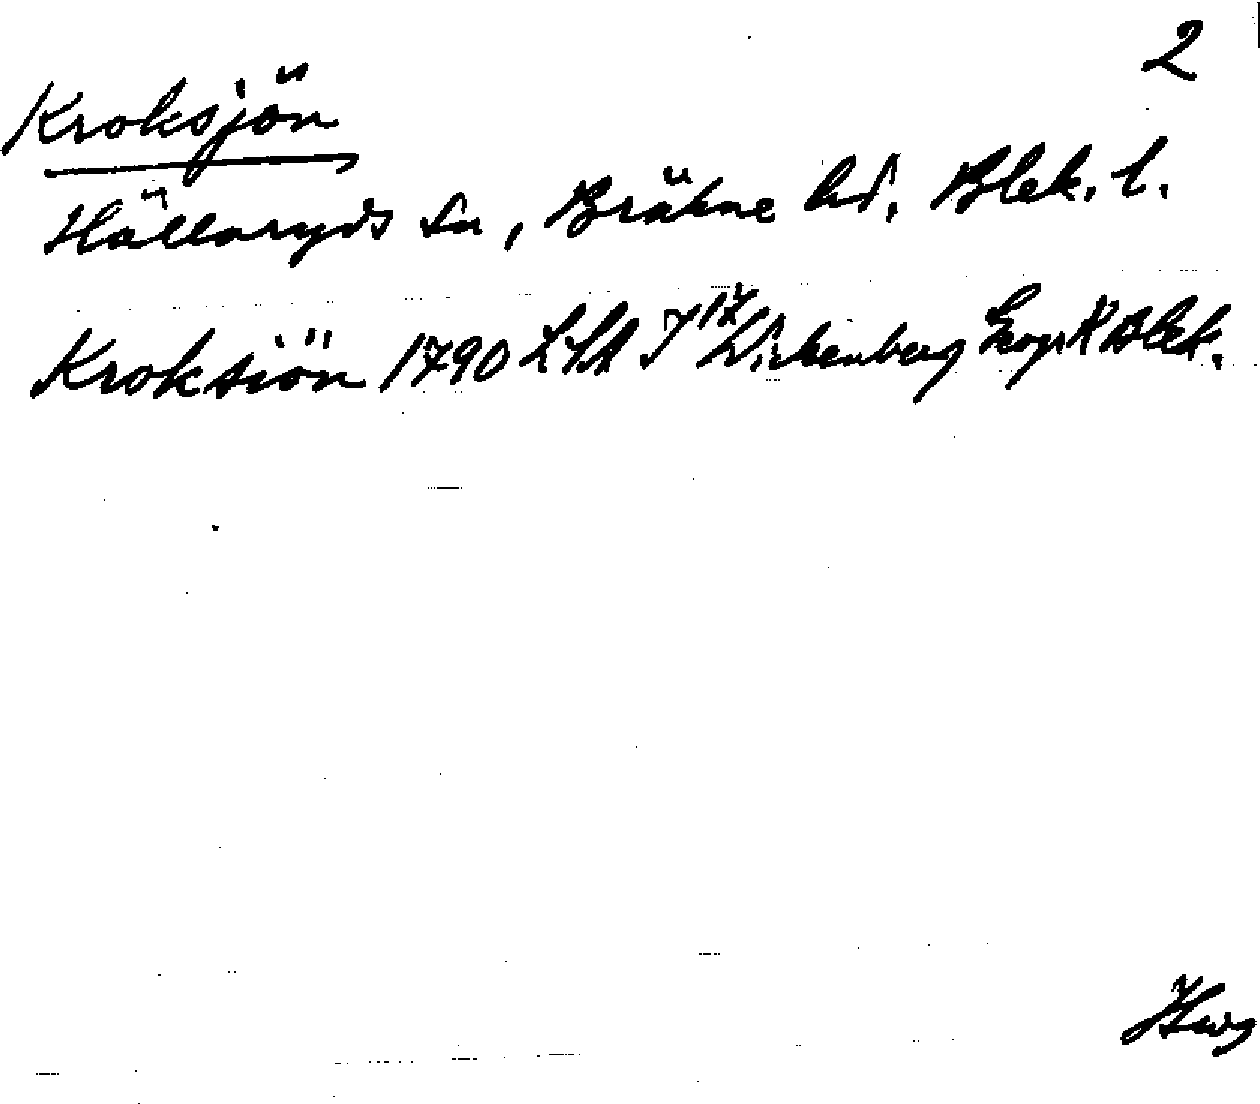 2
Kroksjön
Hällaryds sn, Bräkne hd, Blek. l.
Kroksiön 1790 LSA J 17 Wirkenberg Geogr K Blek.